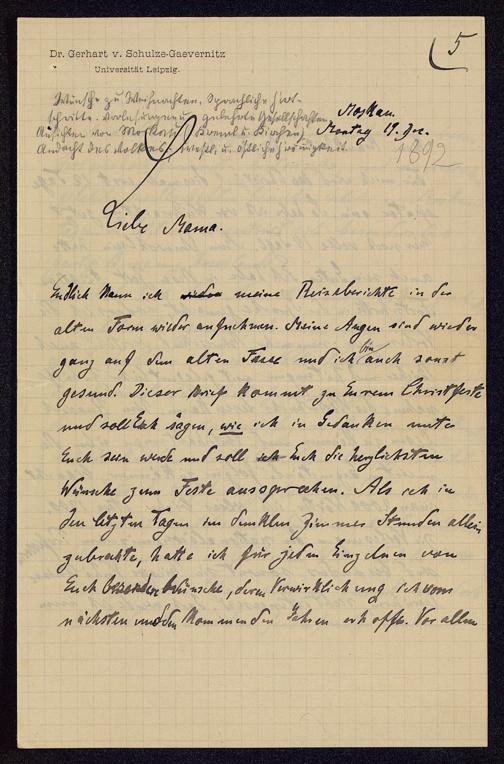 5
Dr. Gerhart v. Schulze-Gaevernitz
Universität Leipzig.
Wünsche zu Weihnachten, Sprachliche Fort-
schritte. Vorlesungen u. gelehrte Gesellschaften
Ansichten von Moskau, Kreml u. Kirchen,
Andacht des Volkes, westl. u. östliche
Moskau.
Montag 19. Dec.
1892
Liebe Mama.
Endlich kann ich wieder meine Reiseberichte in der
alten Form wieder aufnehmen. Meine Augen sind wieder
ganz auf dem alten Fusse und ich bin auch sonst
gesund. Dieser Brief kommt zu Eurem Christfeste
und soll Euch sagen, wie ich in Gedanken unter
Euch sein werde und soll ich Euch die herzlichsten
Wünsche zum Feste aussprechen. Als ich in
den letzten Tagen im dunklen Zimmer Stunden allein
zubrachte, hatte ich für jeden Einzelnen von
Euch besondere Wünsche, deren Verwirklichung ich vom
nächsten und den kommenden Jahren erhoffe. Vor allem